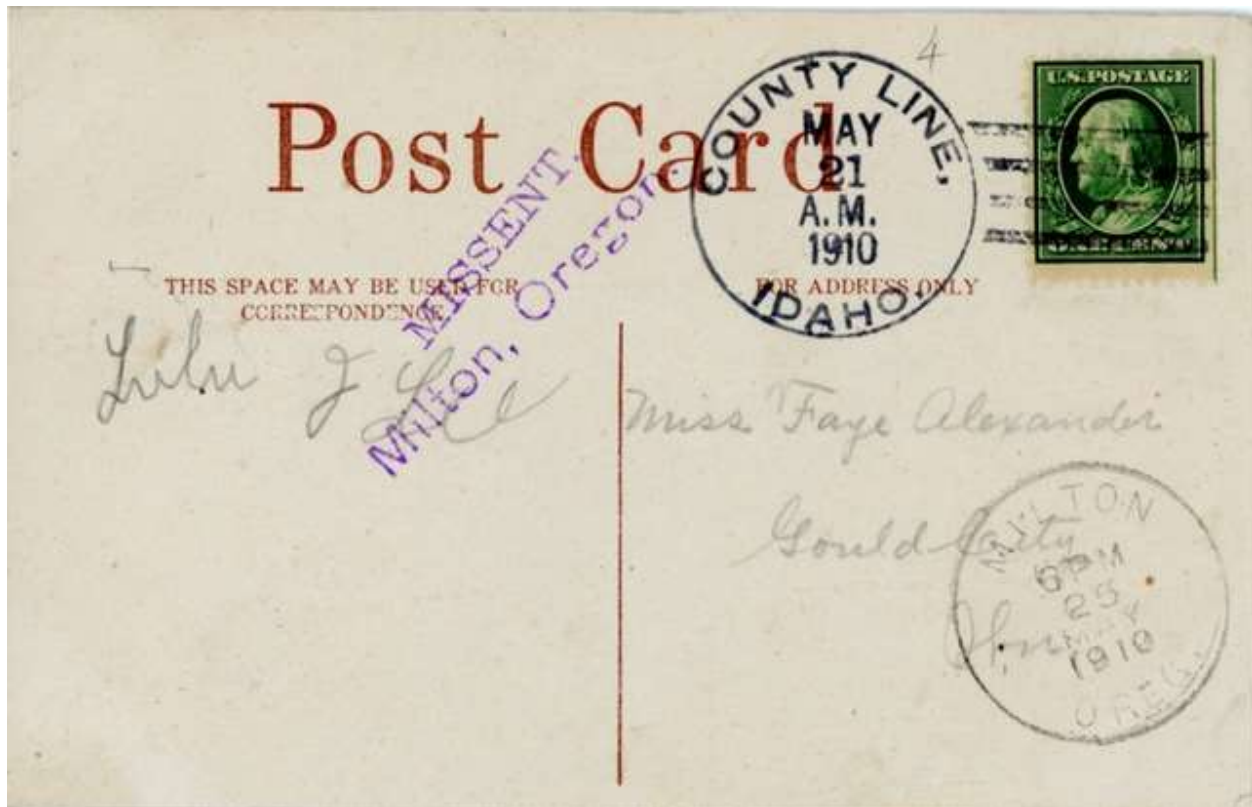 4
U.S. POSTAGE
ONE CENT
Post Card
COUNTY LINE,
MAY
21
A.M.
1910
IDAHO.
MISSENT.
Milton, Oregon.
THIS SPACE MAY BE USED FOR
CORRESPONDENCE
FOR ADDRESS ONLY
Lulu J Lee
Miss Faye Alexander
Gould City
MILTON
6 PM
25
MAY
1910
OREG.